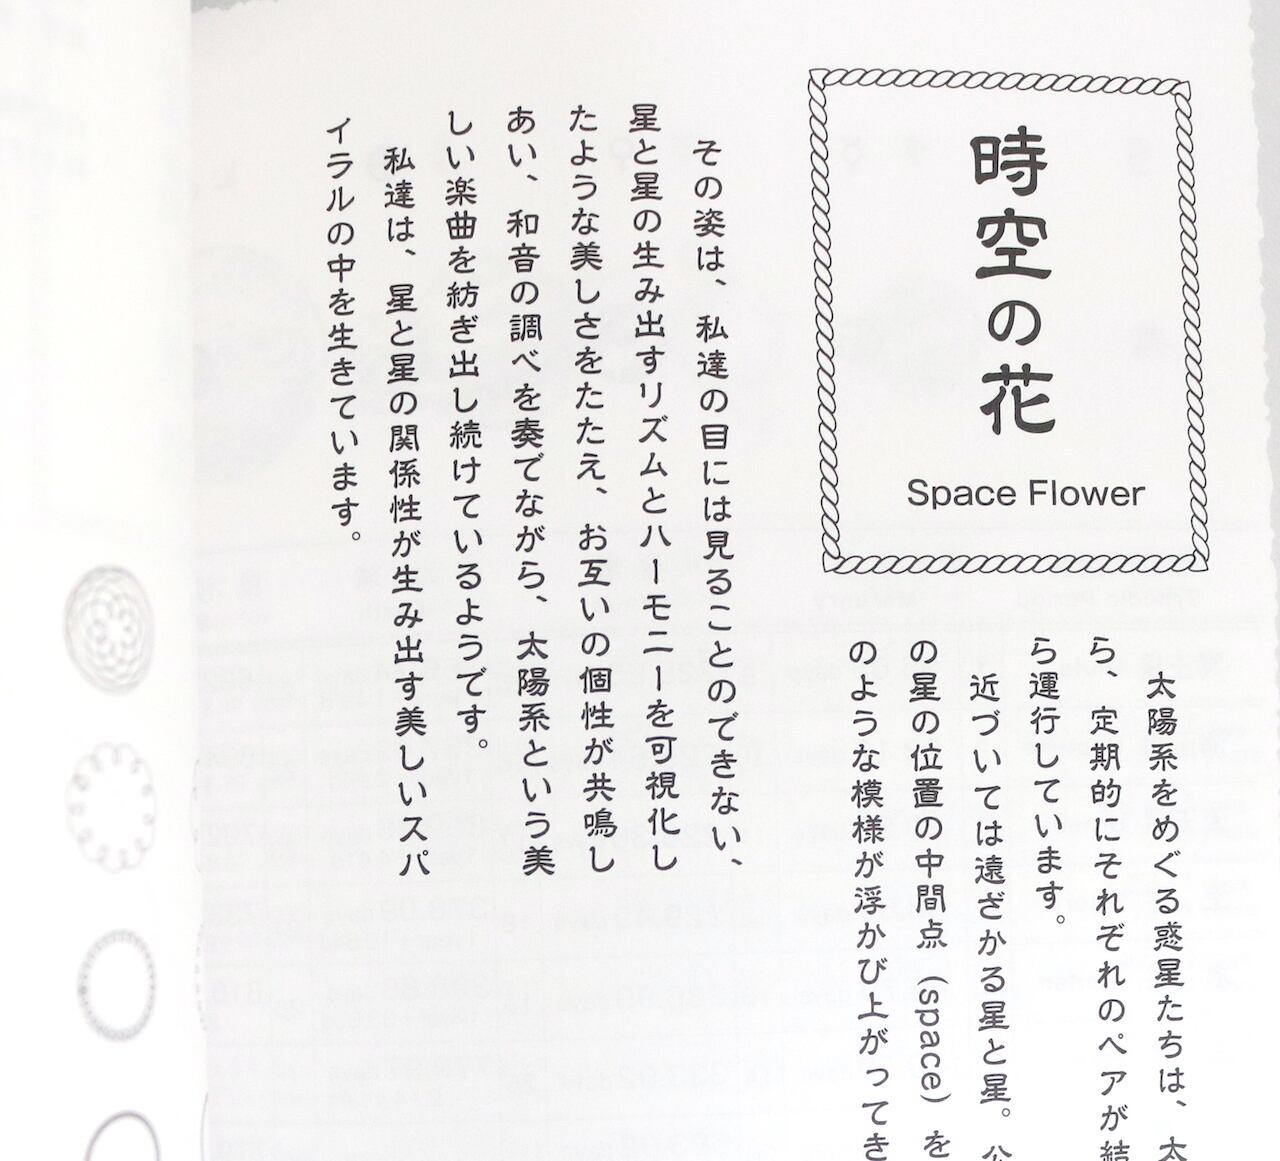 時空の花
Space Flower
太陽系をめぐる惑星たちは、太
ら、定期的にそれぞれのペアが結
ら運行しています。
近づいては遠ざかる星と星。公
の星の位置の中間点（space）を
のような模様が浮かび上がってき
その姿は、私達の目には見ることのできない、
星と星の生み出すリズムとハーモニーを可視化し
たような美しさをたたえ、お互いの個性が共鳴し
あい、和音の調べを奏でながら、太陽系という美
しい楽曲を紡ぎ出し続けているようです。
私達は、星と星の関係性が生み出す美しいスパ
イラルの中を生きています。